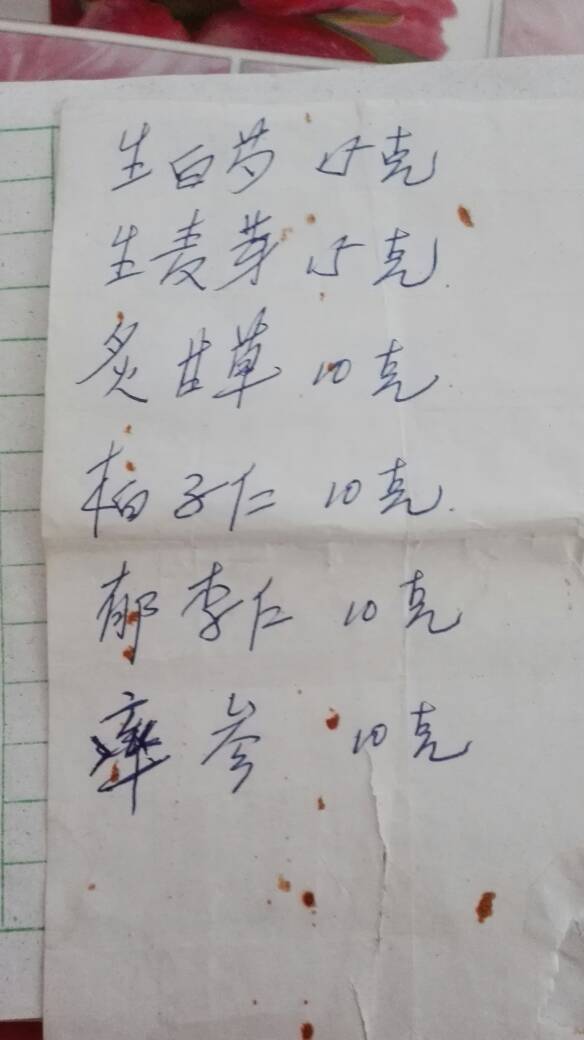 生白芍 15克
生麦芽 15克
炙甘草 10克.
柏子仁 10克.
郁李仁 10克
参 10克